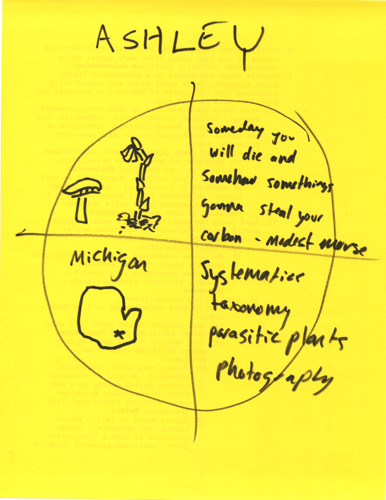 ASHLEY
someday you
will die and
somehow somethings
gonna steal your
carbon - modest mouse
Michigan
Systematics
taxonomy
parasitic plants
photography